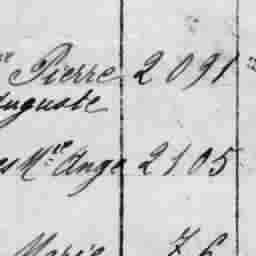 Pierre 2091
Auguste
es Mie Ange 2105
Marie 76